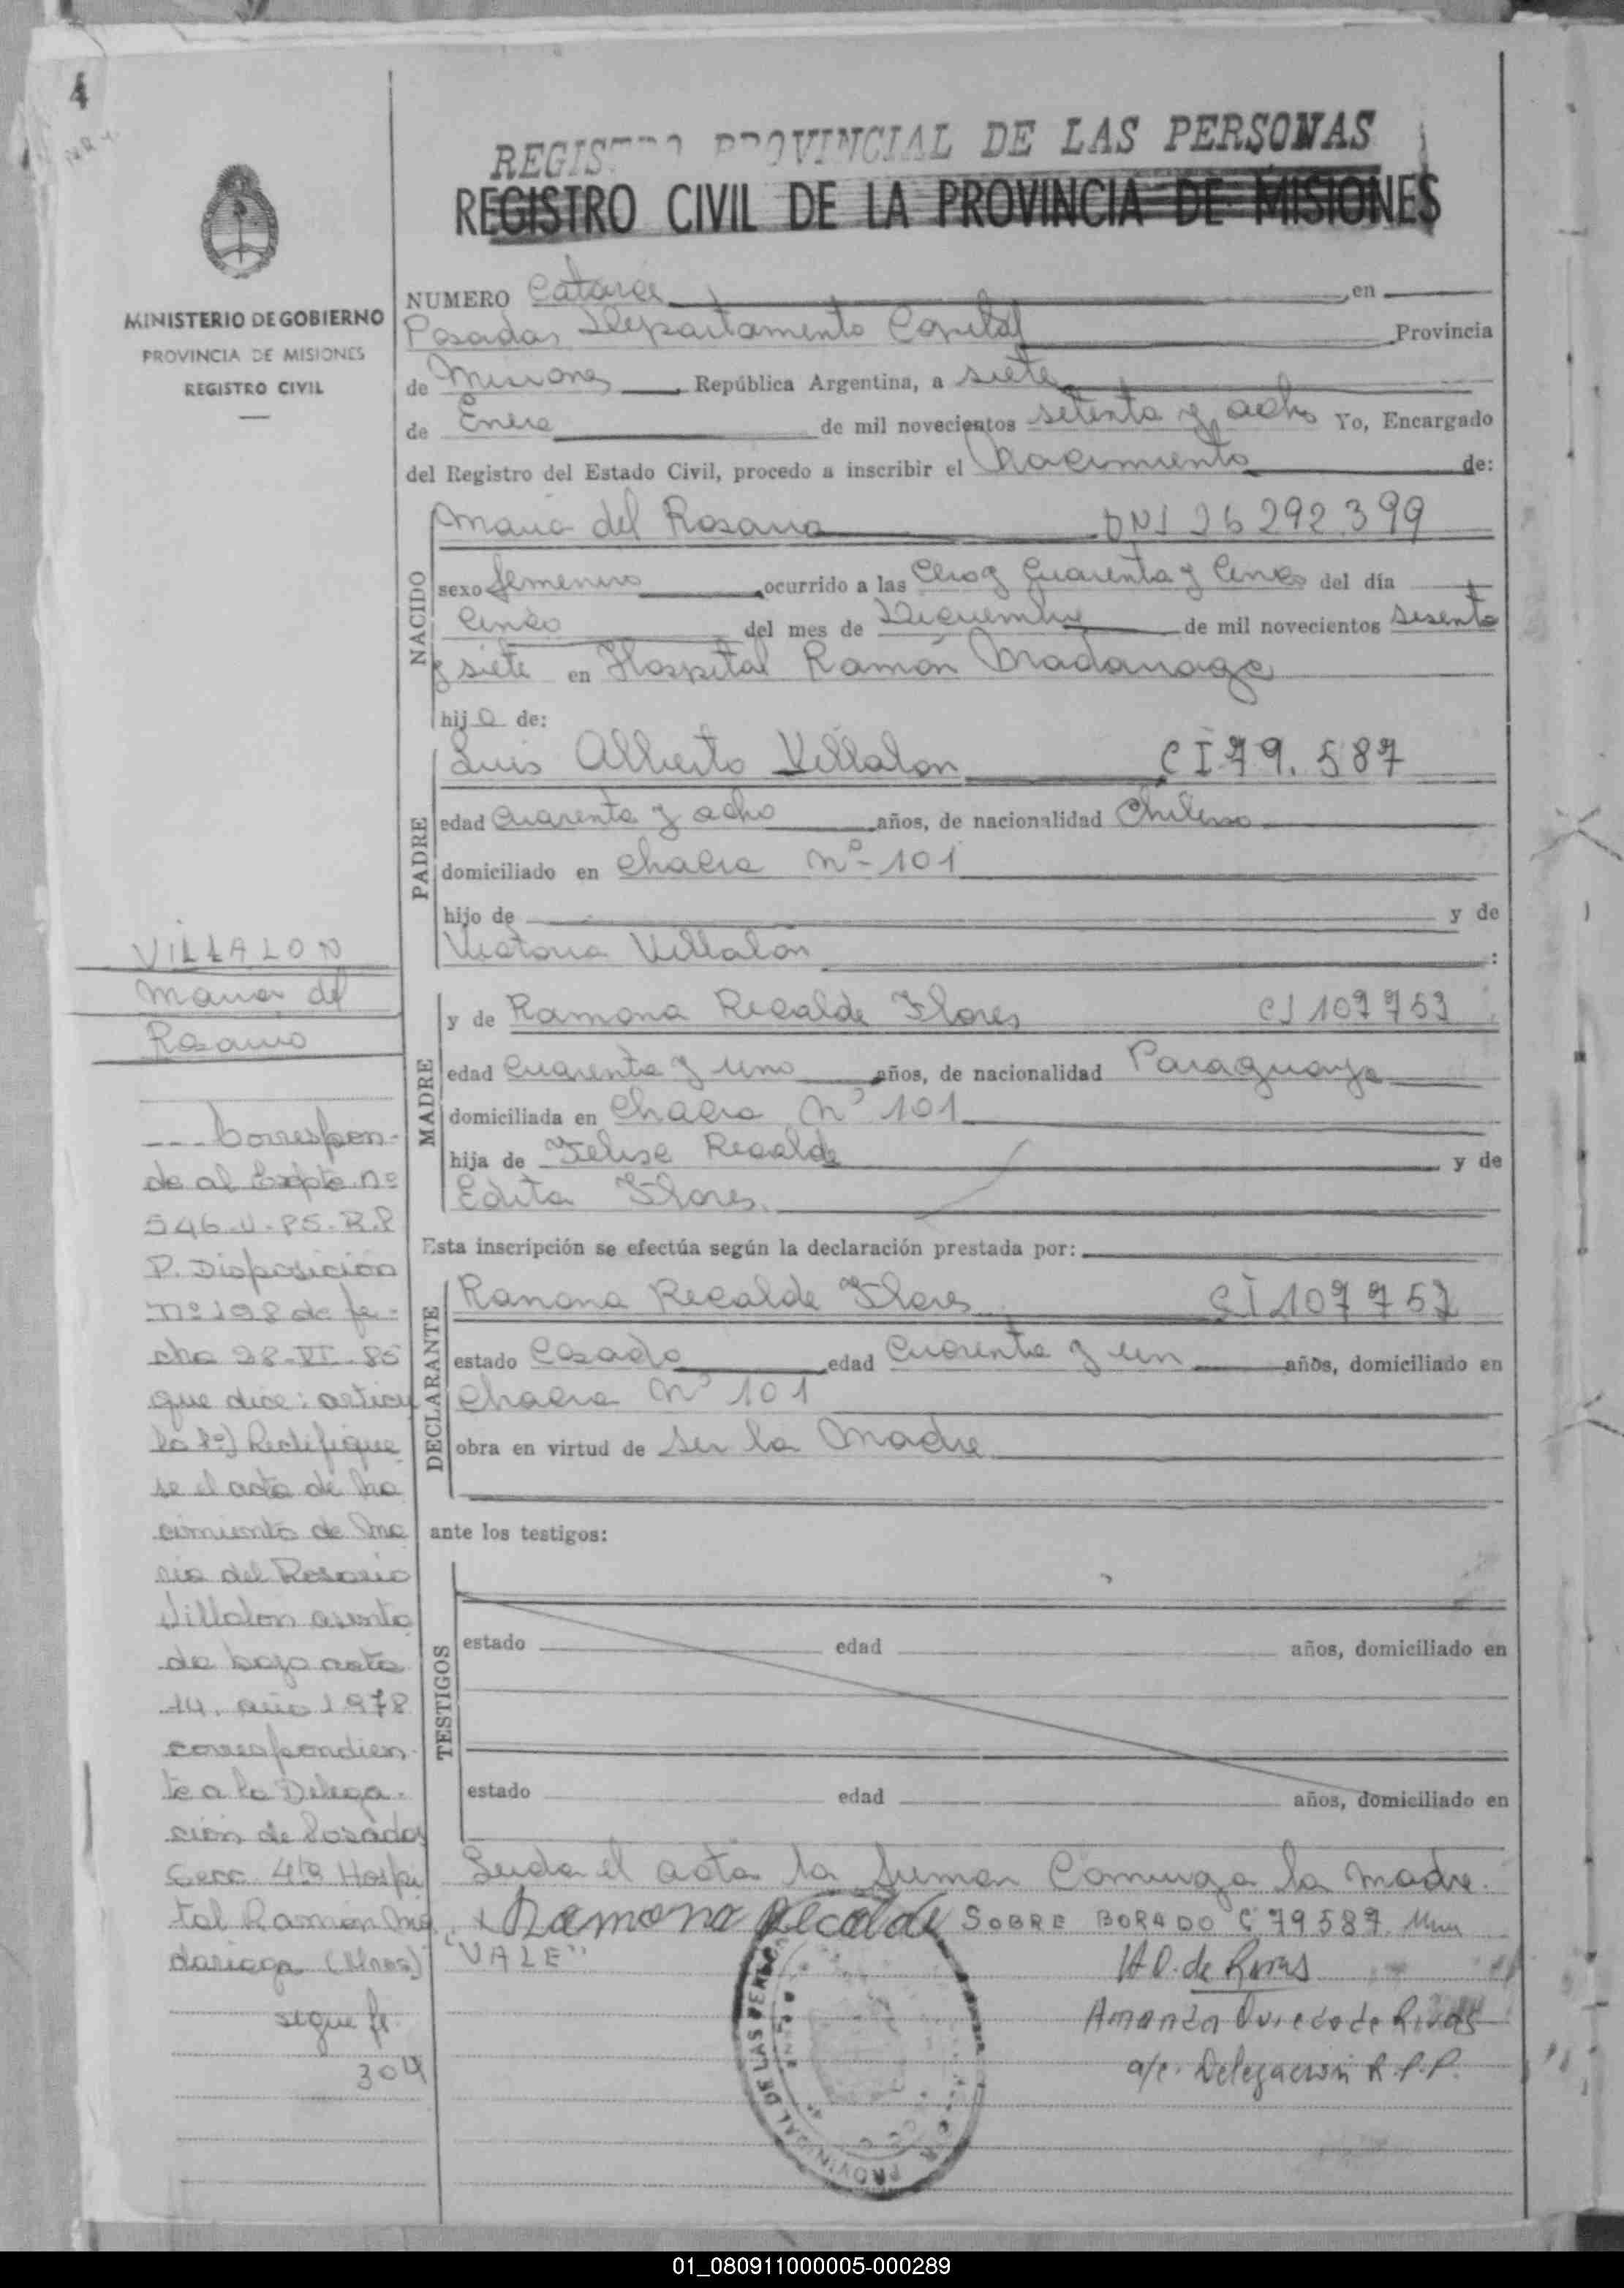 4
REGISTRO PROVINCIAL DE LAS PERSONAS
REGISTRO CIVIL DE LA PROVINCIA DE MISIONES
MINISTERIO DE GOBIERNO
PROVINCIA DE MISIONES
REGISTRO CIVIL
NUMERO Catorce, en
Posadas Departamento Capital Provincia
de Misiones, República Argentina, a siete
de Enero de mil novecientos setenta y ocho Yo, Encargado
del Registro del Estado Civil, procedo a inscribir el Nacimiento de:
NACIDO
Maria del Rosario DNI 26 292.399
sexo femenino ocurrido a las Cero y Cuarenta y Cinco del día
Cinco del mes de Diciembre de mil novecientos sesenta
y siete en Hospital Ramón Madariaga
hija de:
PADRE
Luis Alberto Villalon CI 79.587
edad Cuarenta y ocho años, de nacionalidad Chileno
domiciliado en Chacra Nº 101
hijo de y de
Victoria Villalón :
MADRE
y de Ramona Recalde Flores CI 107 757
edad Cuarenta y uno años, de nacionalidad Paraguaya
domiciliada en Chacra Nº 101
hija de Felisa Recalde y de
Edita Flores.
Esta inscripción se efectúa según la declaración prestada por:
DECLARANTE
Ramona Recalde Flores CI 107 757
estado Casada edad Cuarenta y un años, domiciliado en
Chacra Nº 101
obra en virtud de ser la Madre
ante los testigos:
TESTIGOS
estado edad años, domiciliado en
estado edad años, domiciliado en
Leida el acta la firman Conmigo la madre.
Ramona Recalde SOBRE BORADO C 79587.
"VALE"
A O. de Rivas
Amanda Oviedo de Rivas
a/c. Delegación R.P.P.
PROVINCIAL DE LAS PERSONAS
VILLALON
Maria del
Rosario
--- Correspon-
de al Expte. nº
546-V-85-R.P
P. Disposición
nº 198 de fe-
cha 28-VI-85
que dice: articu
lo 1º) Rectifique
se el acta de na
cimiento de Ma
ria del Rosario
Villalon asenta
da bajo acta
14. año 1978
correspondien-
te a la Delega-
ción de Posadas
Secc 4ta Hospi
tal Ramon Ma
dariaga (Mnes)
sigue fº.
304
01_080911000005-000289